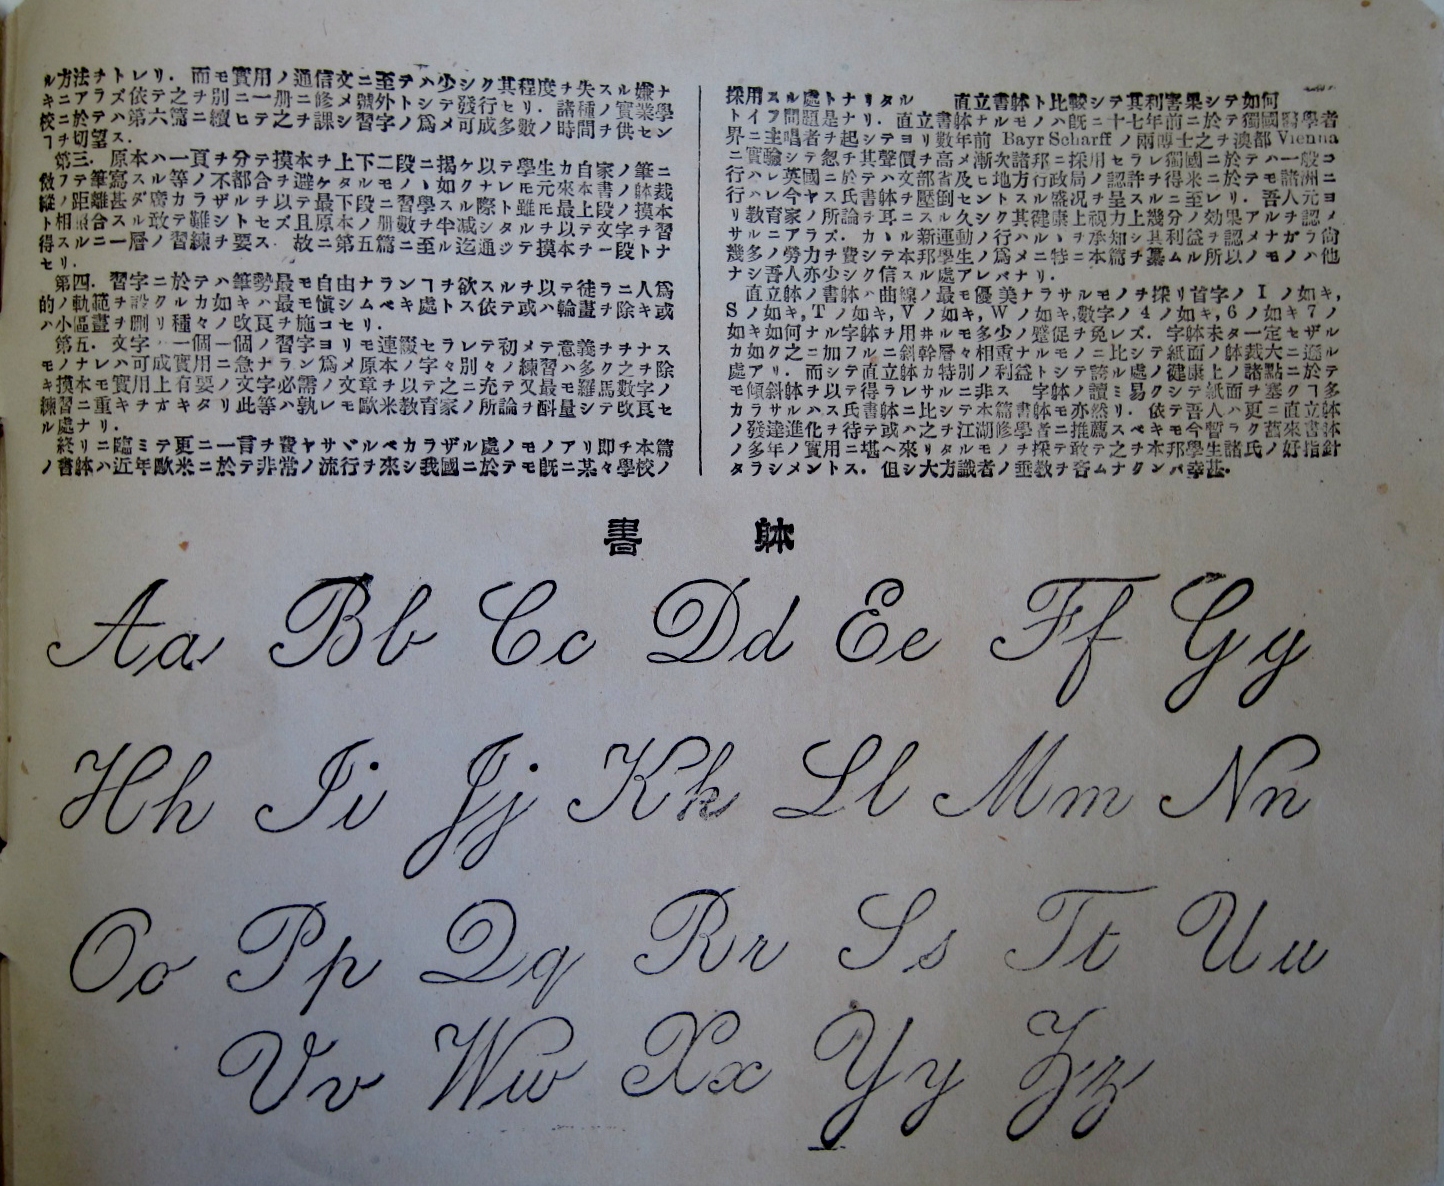 ル方法チトレリ．而モ實用ノ通信文ニ至テハ少シク其程度チ失スル嫌ナ
キニアラズ依テ之チ別ニ一册ニ修メ號外トシテ發行セリ．諸種ノ實業學
校ニ於テハ第六篇ニ續ヒテ之チ課シ習字ノ爲メ可成多數ノ時間チ供セン
ヿチ切望ス．
第三．原本ハ一頁チ分テ摸本チ上下二段ニ揭ケ以テ學生カ自家ノ筆ニ
倣フテ筆寫スル等ノ不都合チ避ケタルモノヽ如クナレ元來本書ノ躰裁
縱ノ距離甚ダ廣カラザルチ以テ最下段ニ習學スル際ト雖モ最上段ノ摸本
ノ相照スル敢テ難シトセズ且原本ノ册數チ半减シタルチ以テ文字チ習
得スルニ一層ノ習練チ要ス．故ニ第五篇ニ至ル迄通シテ摸本チ一段トナ
セリ．
第四．習字ニ於テハ筆勢最モ自由ナランヿチ欲スルチ以テ徒ラニ人爲
的ノ軌範チ設クルカ如キハ最モ愼シムベキ處トス依テ或ハ輪畫チ除キ或
ハ小區畫ヲ删リ種々ノ改良チ施コセリ．
第五．文字ハ一個一個ノ習字ヨリモ連綴セラレテ初メテ意義チチナス
モノナレハ可成實用ニ急ナラン爲メ原本ノ字々別々ノ練習ハ多クハ之チ除
キ摸本モ實用上有要ノ文字必需ノ文章チ以テ之ニ充テ又最モ羅馬數字ノ
練習ニ重キチオキタリ此等ハ孰レモ歐米敎育家ノ所論チ斟量シテ改良セ
ル處ナリ．
終リニ臨ミテ更ニ一言チ費ヤサヾルベカラザル處ノモノアリ卽チ本篇
ノ書躰ハ近年歐米ニ於テ非常ノ流行チ來シ我國ニ於テモ旣ニ某々學校ノ
採用スル處トナリタル 直立書躰ト比較シテ其利害果シテ如何
トイフ問題是ナリ．直立書躰ナルモノハ旣ニ十七年前ニ於テ獨國醫學者
界ニ主唱者チ起シテヨリ數年前 Bayr Scharff ノ兩博士之チ澳都 Vienna
ニ實驗シテ忽チ其聲價チ高メ漸次諸邦ニ採用セラレ獨國ニ於テハ一般ニ
行ハレ英國ニ於テハ文部省及ヒ地方行政局ノ認許チ得米ニ於テモ諸洲ニ
行ハレ今ヤス氏書躰チ壓倒セントスル盛况チ呈スルニ至レリ．吾人元ヨ
リ敎育家ノ所論チ耳ニスル久シク其健康上視力上幾分ノ効果アルチ認メ
サルニアラズ．カヽル新運動ノ行ハルヽチ承知シ其利益チ認メナガラ尙
幾多ノ勞力チ費シテ本邦學生ノ爲メニ特ニ本篇チ纂ムル所以ノモノハ他
ナシ吾人亦少シク信スル處アレバナリ．
直立躰ノ書躰ハ曲線ノ最モ優美ナラサルモノチ採リ首字ノ I ノ如キ,
S ノ如キ, T ノ如キ, V ノ如キ, W ノ如キ, 數字ノ 4 ノ如キ, 6 ノ如キ 7 ノ
如キ如何ナル字躰チ用井ルモ多少ノ蹙促チ免レズ．字躰未タ一定セザル
カ如ク之ニ加フルニ斜幹層々相重ナルモノニ比シテ紙面ノ躰裁大ニ遜ル
處アリ．而シテ直立躰カ特別ノ利益トシテ誇ル處ノ健康上ノ諸點ニ於テ
モ傾斜躰チ以テ得ラレサルニ非ス 字躰ノ讀ミ易クシテ紙面チ塞クヿ多
カラサルハス氏書躰ニ比シテ本篇書躰モ亦然リ．依テ吾人ハ更ニ直立躰
ノ發達進化チ待テ或ハ之チ江湖修學者ニ推薦スベキモ今暫ラク舊來書躰
ノ多年ノ實用ニ堪ヘ來リタルモノチ採テ敢テ之チ本邦學生諸氏ノ好指針
タラシメントス．但シ大方識者ノ垂敎チ吝ムナクンバ幸甚．
書 躰
Aa Bb Cc Dd Ee Ff Gg
Hh Ii Jj Kk Ll Mm Nn
Oo Pp Qq Rr Ss Tt Uu
Vv Ww Xx Yy Zz